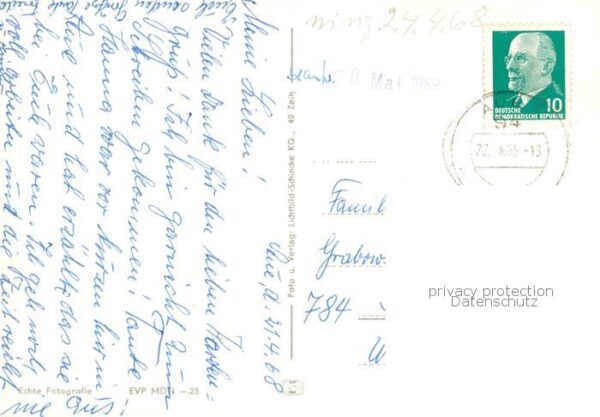 ning. 24.4.68
30. Mai 1968
10
DEUTSCHE
DEMOKRATISCHE REPUBLIK
22. 4.68-13
Aue, d. 21.4.68
Meine Lieben!
Vielen Dank für den lieben Karten-
gruß! Ich bin garnicht zum
Schreiben gekommen! Tante
Hanna war vor kurzem hier in
Aue und hat erzählt, das sie
bei Euch waren. Ich geh noch
arbeiten und die Zeit reicht
nie aus!
Famil
Grabow
784
Foto u. Verlag: Lichtbild-Schincke KG., 49 Zeitz
Echte Fotografie
EVP MDN -.25
privacy protection
Datenschutz